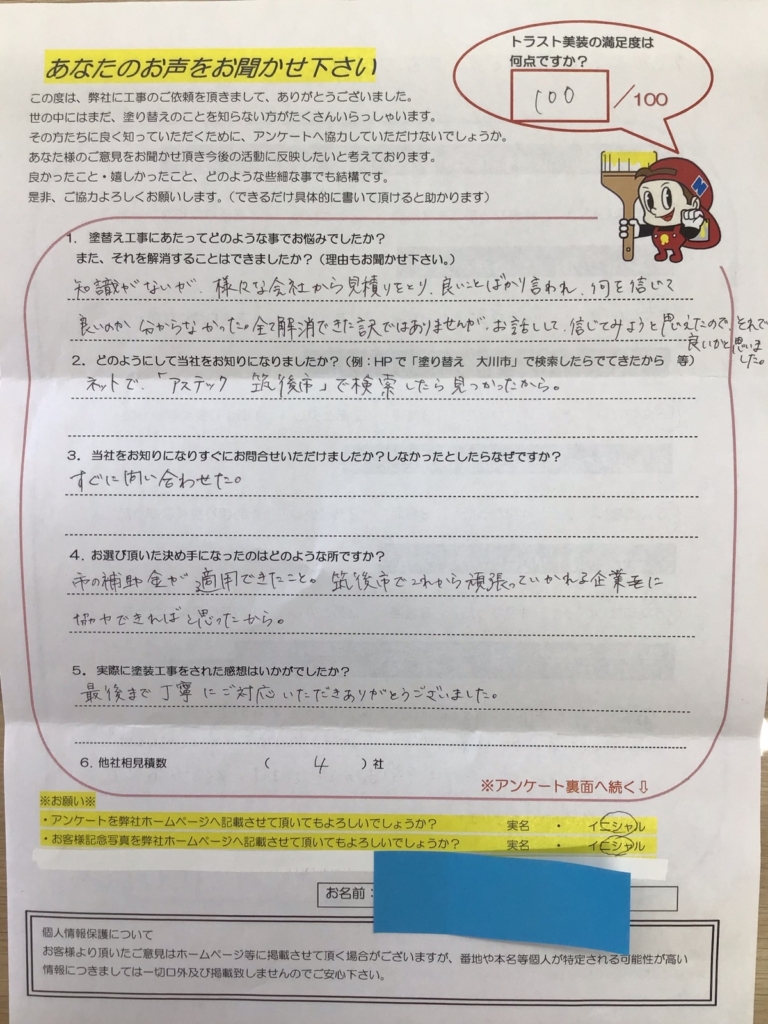 あなたのお声をお聞かせ下さい
トラスト美装の満足度は
何点ですか？
100 /100
この度は、弊社に工事のご依頼を頂きまして、ありがとうございました。
世の中にはまだ、塗り替えのことを知らない方がたくさんいらっしゃいます。
その方たちに良く知っていただくために、アンケートへ協力していただけないでしょうか。
あなた様のご意見をお聞かせ頂き今後の活動に反映したいと考えております。
良かったこと・嬉しかったこと、どのような些細な事でも結構です。
是非、ご協力よろしくお願いします。（できるだけ具体的に書いて頂けると助かります）
N
1. 塗替え工事にあたってどのような事でお悩みでしたか？
また、それを解消することはできましたか？（理由もお聞かせ下さい。）
知識がないが、様々な会社から見積りをとり、良いことばかり言われ、何を信じて
良いのか分からなかった。全て解消できた訳ではありませんが、お話しして、信じてみようと思えたので、それで
良いかと思いま
した。
2. どのようにして当社をお知りになりましたか？（例：HPで「塗り替え 大川市」で検索したらでてきたから 等）
ネットで、「アステック 筑後市」で検索したら見つかったから。
3. 当社をお知りになりすぐにお問合せいただけましたか？しなかったとしたらなぜですか？
すぐに問い合わせた。
4. お選び頂いた決め手になったのはどのような所ですか？
市の補助金が適用できたこと。筑後市でこれから頑張っていかれる企業に
協力できればと思ったから。
5. 実際に塗装工事をされた感想はいかがでしたか？
最後まで丁寧にご対応いただきありがとうございました。
6. 他社相見積数 （ 4 ）社
※アンケート裏面へ続く⇩
※お願い※
・アンケートを弊社ホームページへ記載させて頂いてもよろしいでしょうか？ 実名 ・ イニシャル
・お客様記念写真を弊社ホームページへ記載させて頂いてもよろしいでしょうか？ 実名 ・ イニシャル
お名前：
個人情報保護について
お客様より頂いたご意見はホームページ等に掲載させて頂く場合がございますが、番地や本名等個人が特定される可能性が高い
情報につきましては一切口外及び掲載致しませんのでご安心下さい。